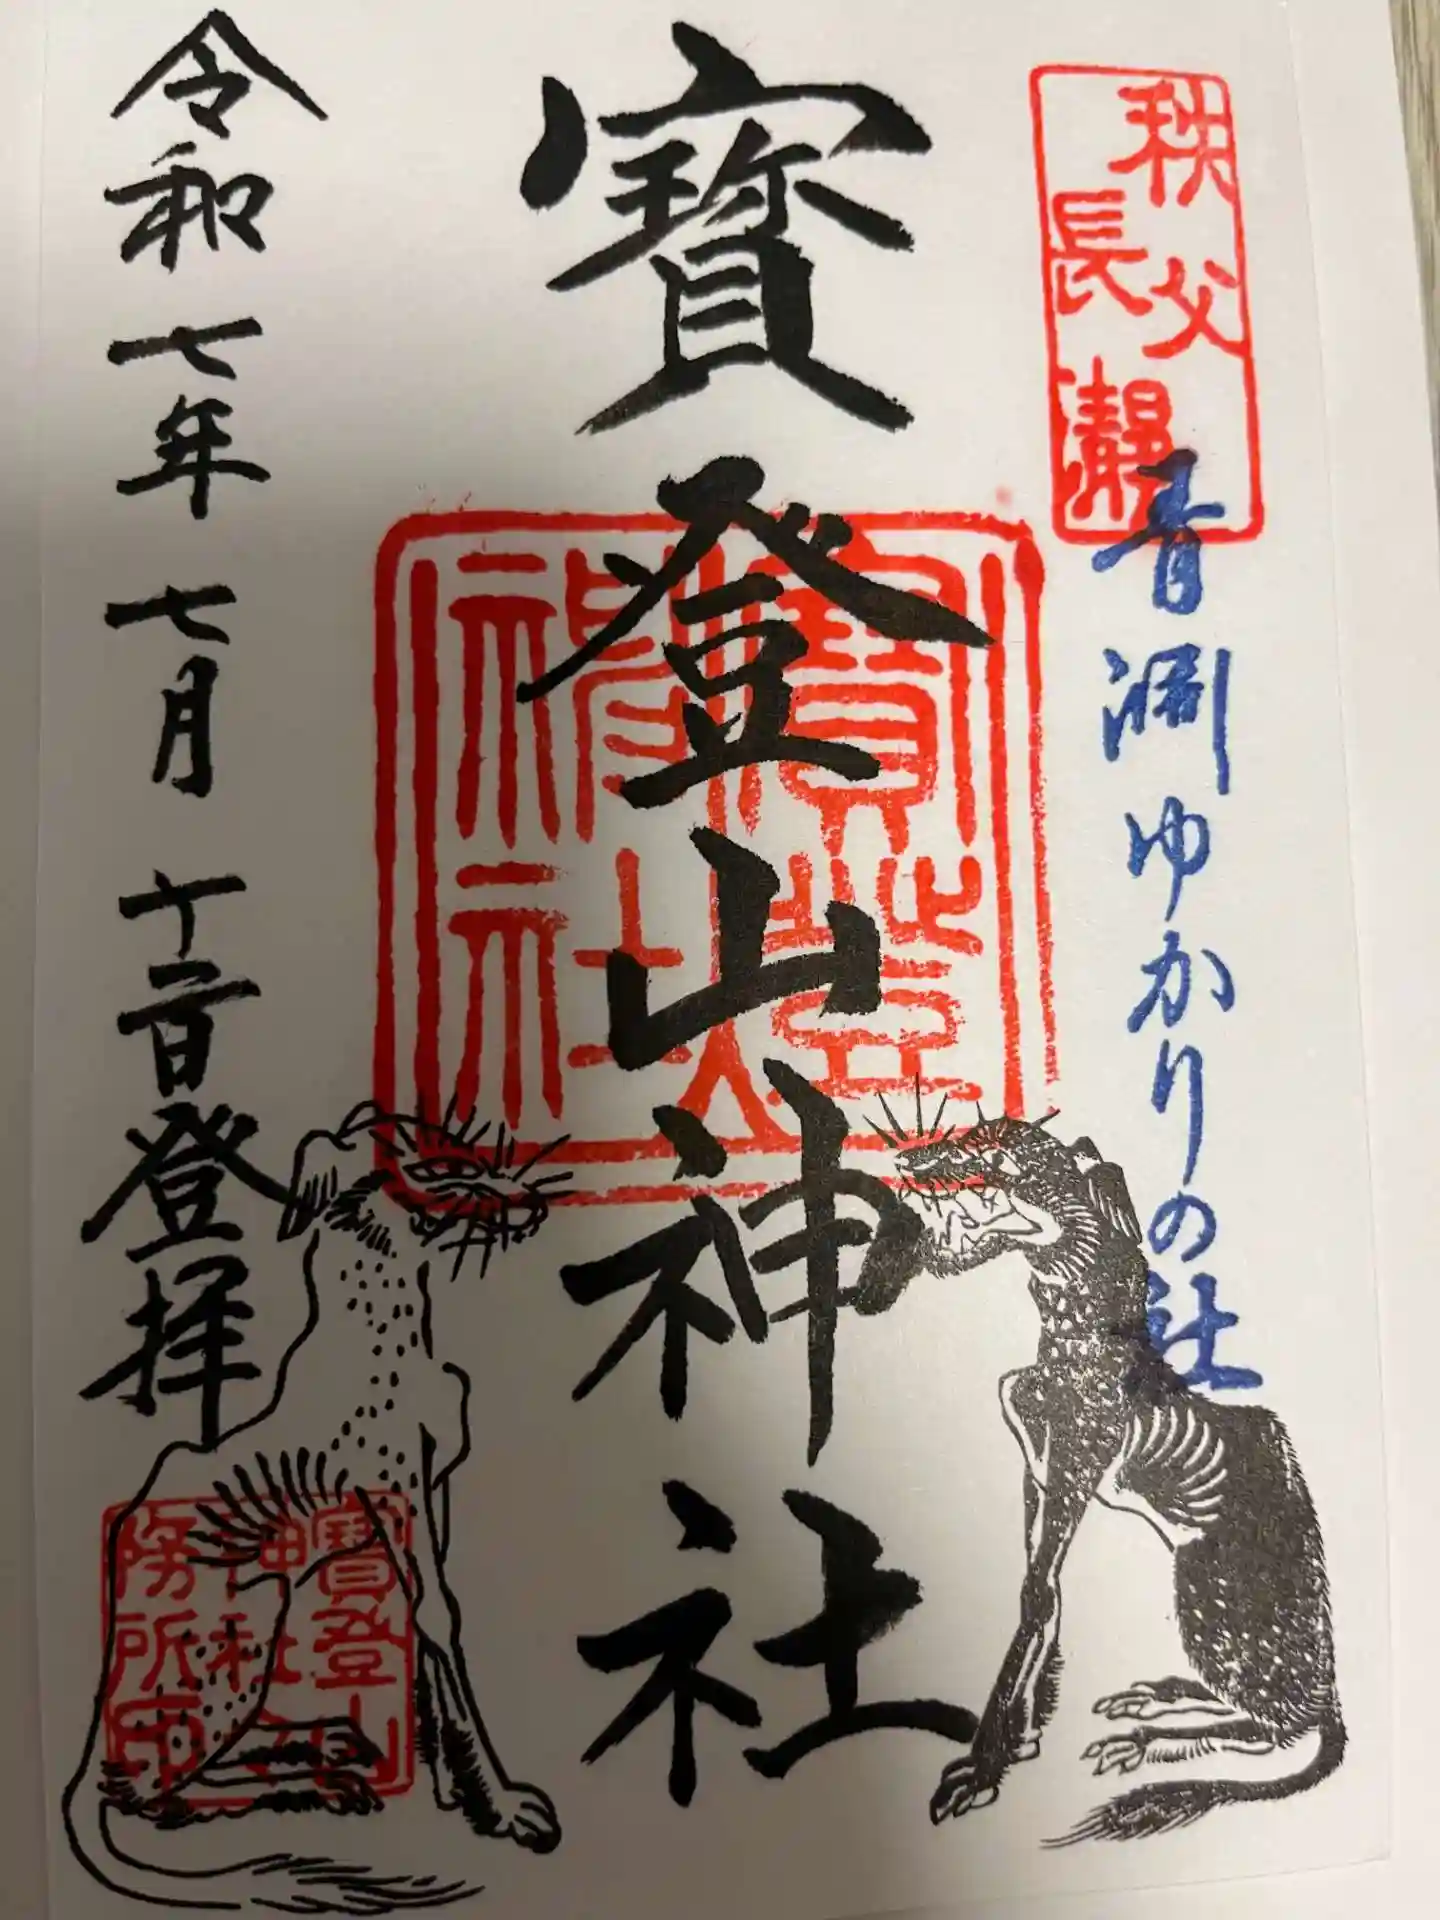 秩父
長瀞
青淵ゆかりの社
寶登山神社
寶登山
神社
令和七年七月十二日登拝
寶登山
神社
務所印